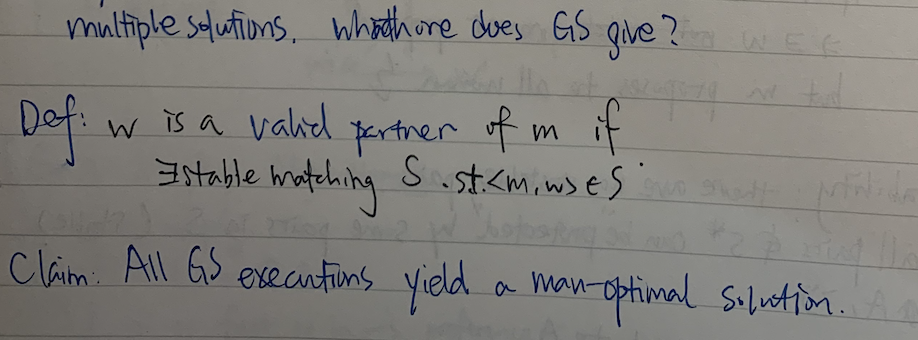 multiple solutions. Which one does GS give?
Def: w is a valid partner of m if
∃ stable matching S .st.<m,w> ∈ S
Claim: All GS executions yield a man-optimal solution.